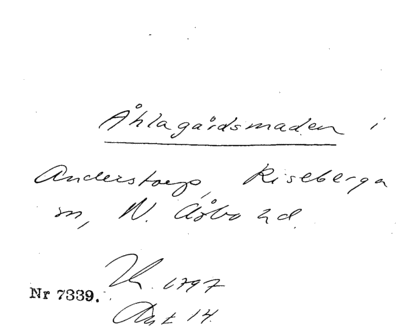 Åhlagårdsmaden i
Anderstorp, Riseberga
sn, N. Åsbo hd.
1797
Nr 7339.
Akt 14.